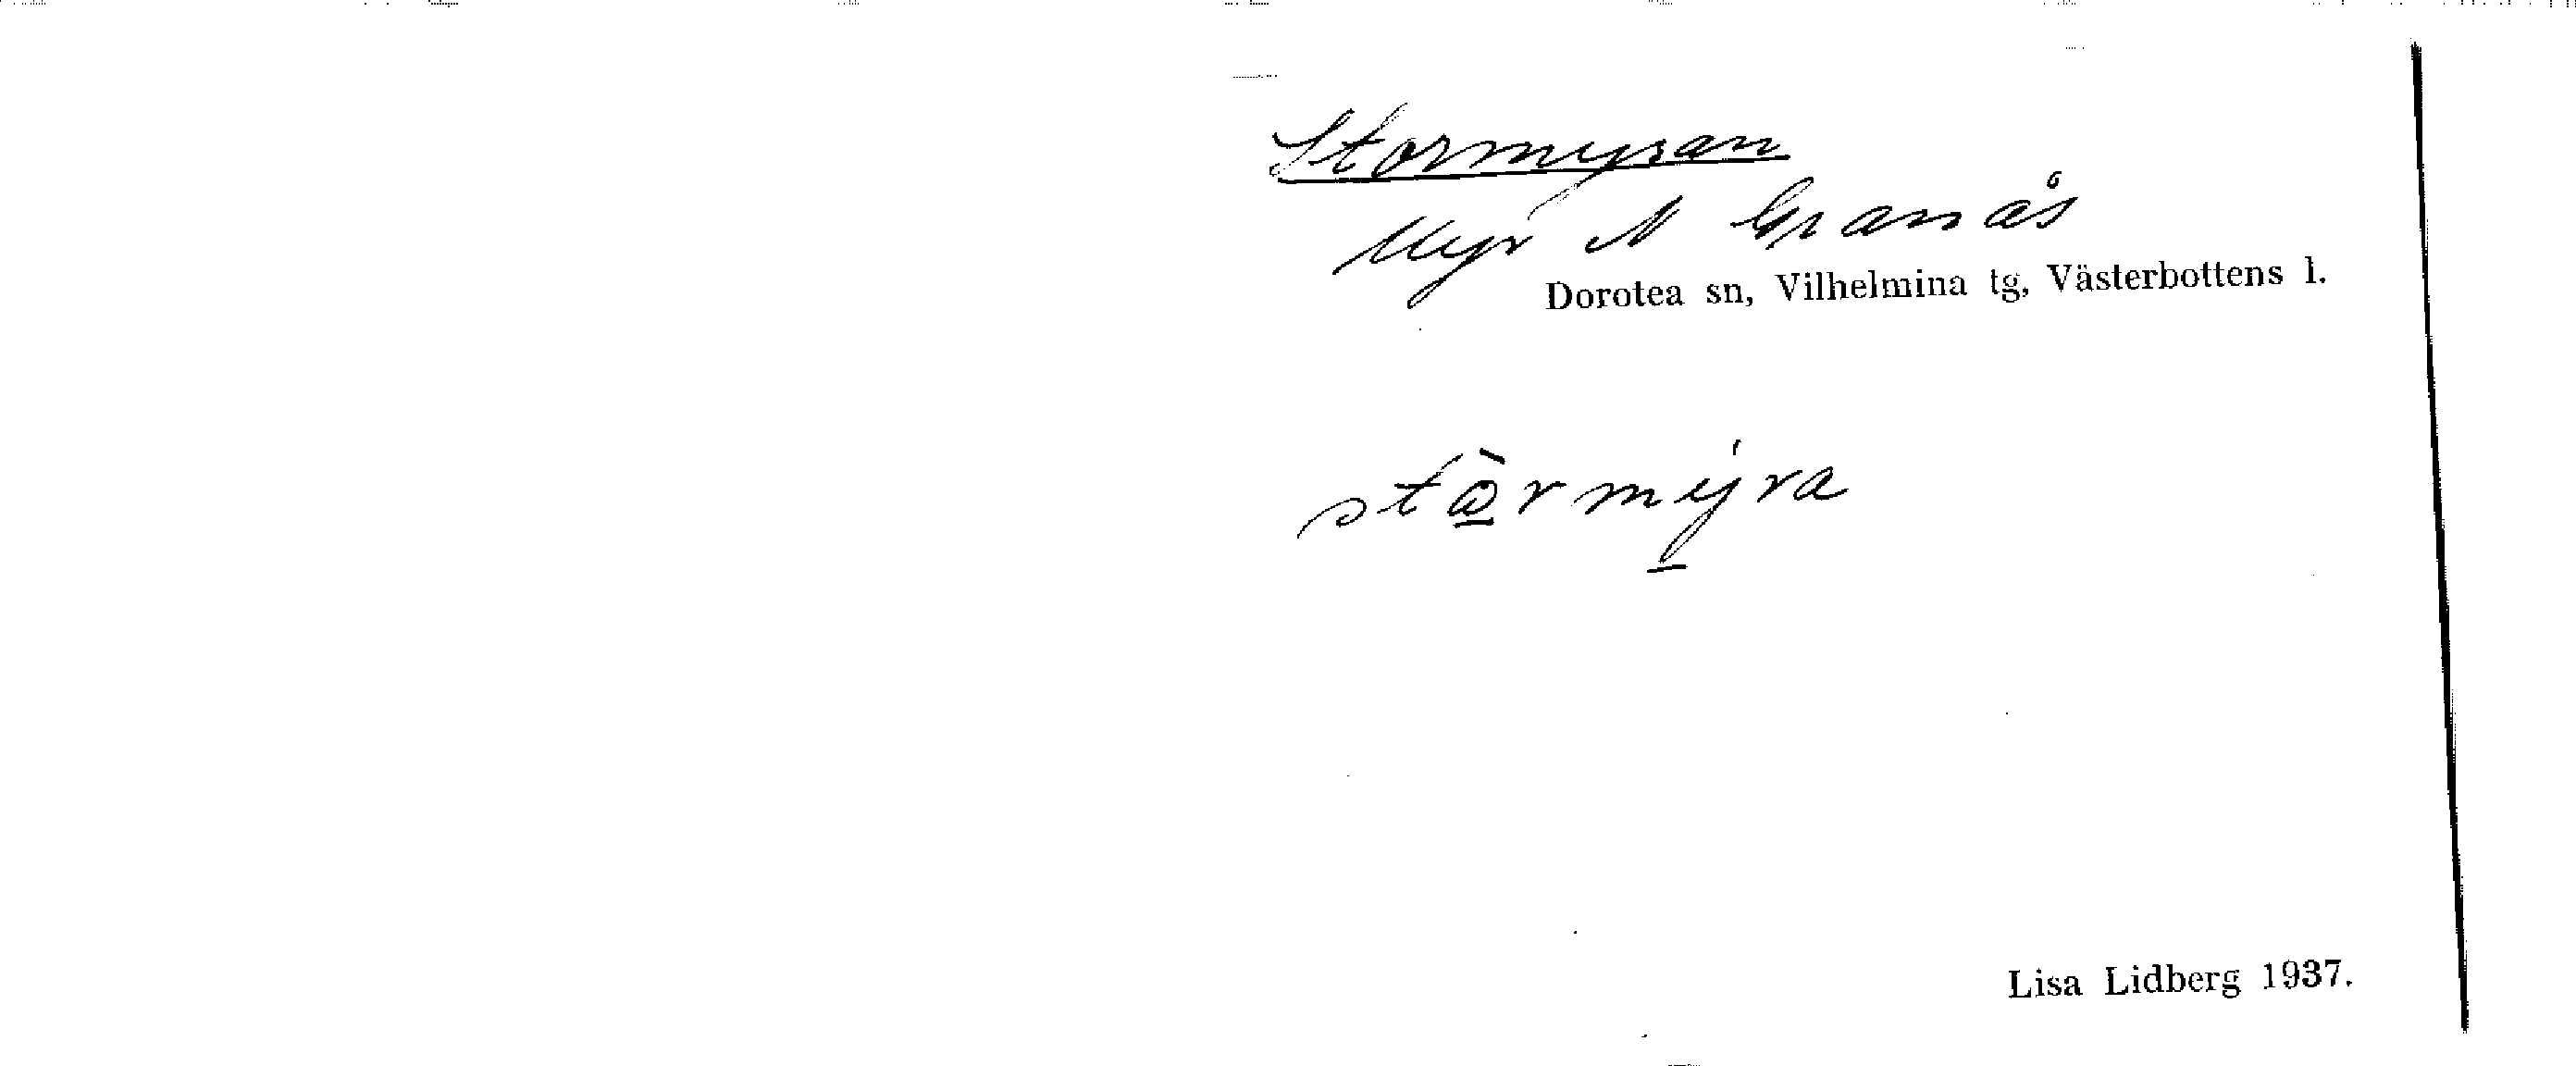 Stormyran
Myr N Granås
Dorotea sn, Vilhelmina tg, Västerbottens l.
stò̱rmý̱ra
Lisa Lidberg 1937.